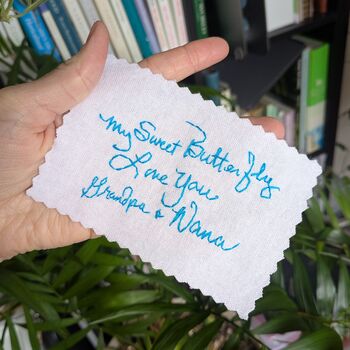 my Sweet Butterfly
Love You
Grandpa & Nana